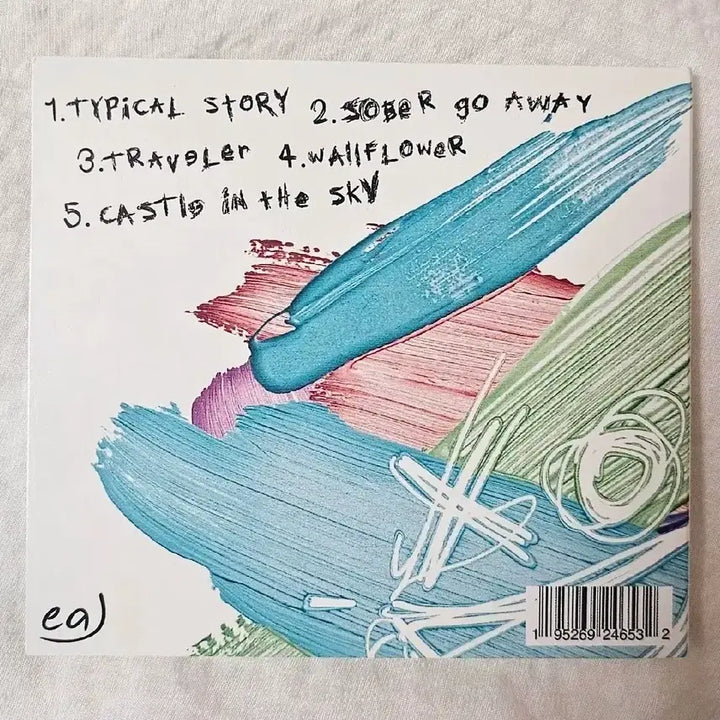 1. TYPICAL STORY 2. SOBER GO AWAY
3. TRAVELER 4. WALLFLOWER
5. CASTLE IN THE SKY
eaJ
1 95269 24653 2